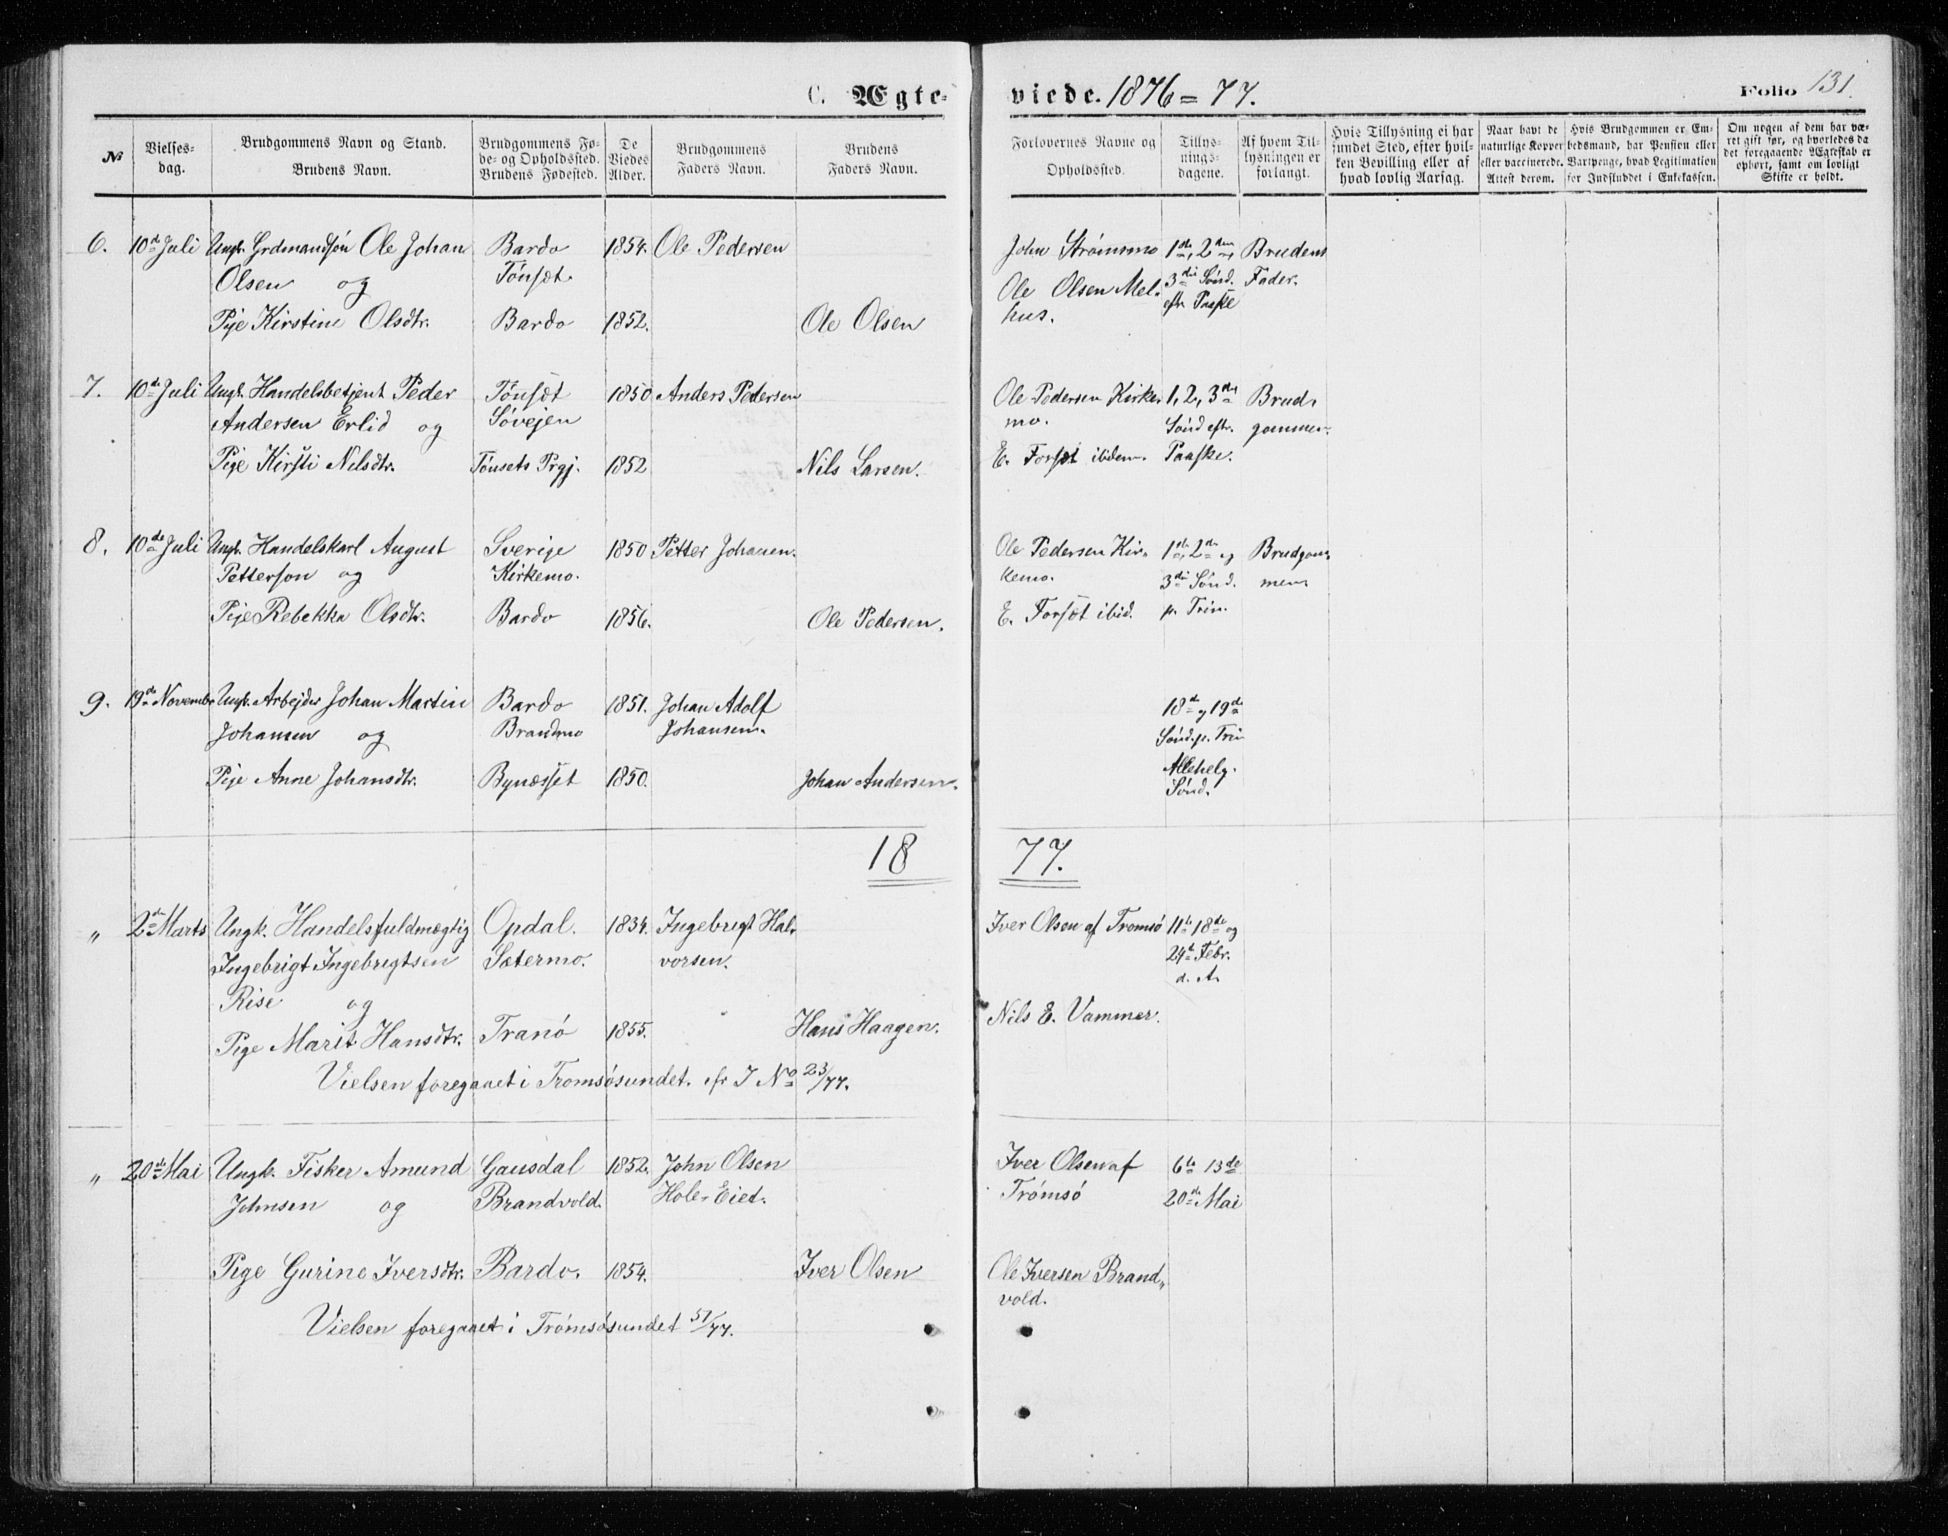 C. Ægte-
viede. 1876 = 77.
Folio 131.
№
Vielses-
dag.
Brudgommens Navn og Stand.
Brudens Navn.
Brudgommens Fø-
de- og Opholdssted.
Brudens Fødested.
De
Viedes
Alder.
Brudgommens
Faders Navn.
Brudens
Faders Navn.
Forlovernes Navne og
Opholdssted.
Tillys-
nings-
dagene.
Af hvem Til-
lysningen er
forlangt.
Hvis Tillysning ei har
fundet Sted, efter hvil-
ken Bevilling eller af
hvad lovlig Aarsag.
Naar havt de
naturlige Kopper
eller vaccinerede.
Attest derom.
Hvis Brudgommen er Em-
bedsmand, har Pension eller
Vartpenge, hvad Legitimation
for Indskuddet i Enkekassen.
Om nogen af dem har væ-
ret gift før, og hvorledes da
det foregaaende Ægteskab er
ophørt, samt om lovligt
Skifte er holdt.
6. 10de Juli Ungk. Grdmandsøn Ole Johan Bardo 1854. Ole Pedersen John Strømsmo 1ste, 2den, Brudens
Olsen og Tönsæt. Ole Olsen Mel- 3die Sönd. Fader.
hus. eftr. Paaske
Pige Kirstine Olsdtr. Bardo 1852. Ole Olsen
7. 10de Juli Ungk. Handelsbetjent Peder Tönsæt 1850 Anders Pedersen Ole Pedersen Kirke- 1, 2, 3de Brud-
Andersen Erlid og Søvejen mo. Sönd eftr. gommen.
Pige Kirsti Nilsdtr. Tönsets Prgj. 1852 Nils Larsen. E. Forsøt ibidem. Paaske.
8. 10de Juli Ungk. Handelskarl August Sverige 1850 Petter Johansen. Ole Pedersen Kir- 1ste, 2den og Brudgom-
Petterson og Kirkemo. kemo. 3die Sönd. men
Pige Rebekka Olsdtr. Bardo 1856. Ole Pedersen. E. Forsøt ibid. p. Trin.
9. 19de Novembr Ungk. Arbejder Johan Martin Bardo 1851. Johan Adolf 18de og 19de
Johansen og Brandmo Johansen. Sönd. p. Trin
Pige Anne Johansdtr. Bynæsset 1850. Johan Andersen. Allehelg.
Sönd.
18 77.
„ 2den Marts Ungk. Handelsfuldmægtig Opdal. 1834. Ingebrigt Hal- Iver Olsen af Tromsö 11te 18de og
Ingebrigt Ingebrigtsen Sætermo. vorsen. 24de Febr.
d. A.
Rise og
Nils E. Vammer.
Pige Marit Hansdtr. Tranö 1855. Hans Haagen.
Vielsen foregaaet i Tromsøsundet. cfr J No 23/77.
„ 20de Mai Ungk. Fisker Amund Gausdal 1852. John Olsen Iver Olsen af 6te 13de
Johnsen og Brandvold. Hole-Eiet. Trömsö 20de Mai
Pige Gurine Iversdtr. Bardo. 1854. Iver Olsen Ole Iversen Brand-
vold.
Vielsen foregaaet i Trömsøsundet 51/77.